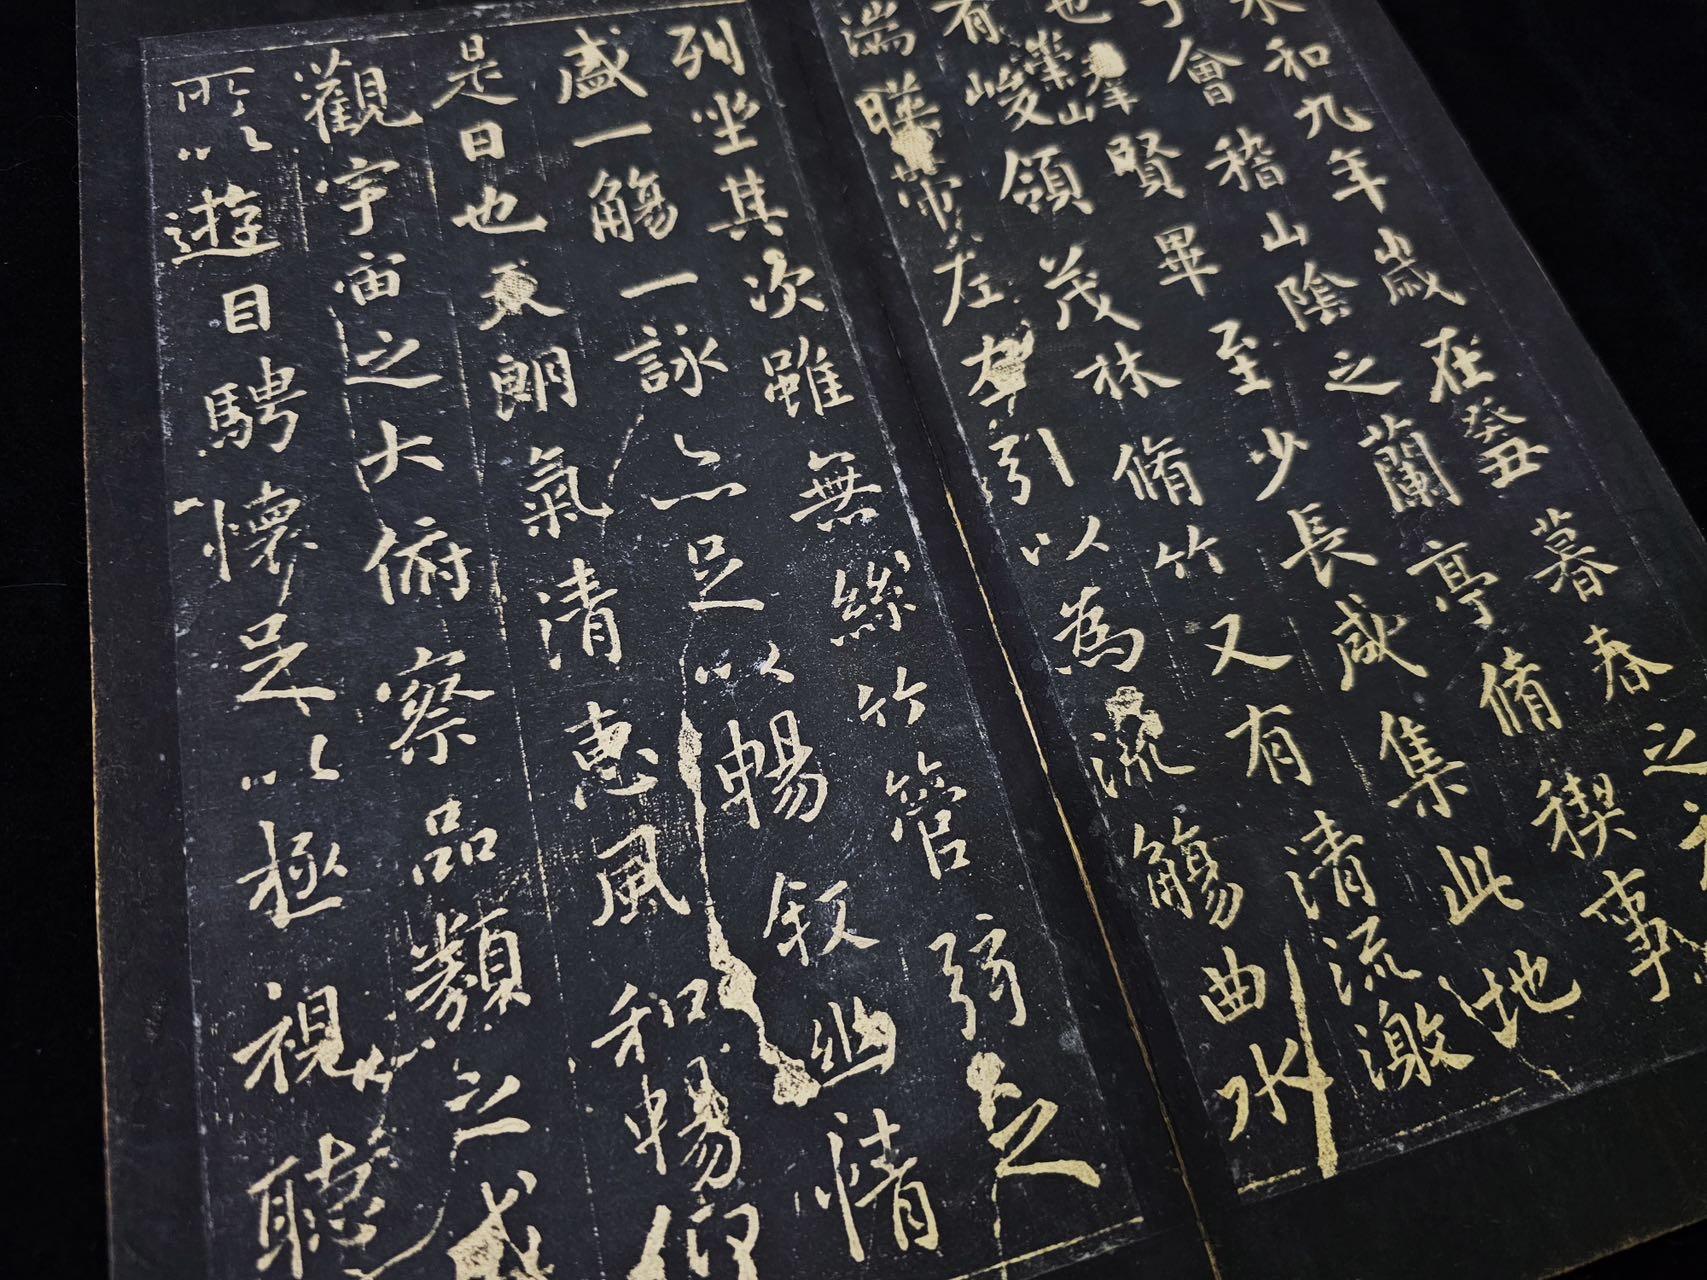 永和九年歲在癸丑暮春之
于會稽山陰之蘭亭脩稧事
也羣賢畢至少長咸集此地
有崇山峻領茂林脩竹又有清流激
湍暎帶左右引以為流觴曲水
列坐其次雖無絲竹管弦之
盛一觴一詠亦足以暢叙幽情
是日也天朗氣清惠風和暢仰
觀宇宙之大俯察品類之盛
所以遊目騁懷足以極視聽